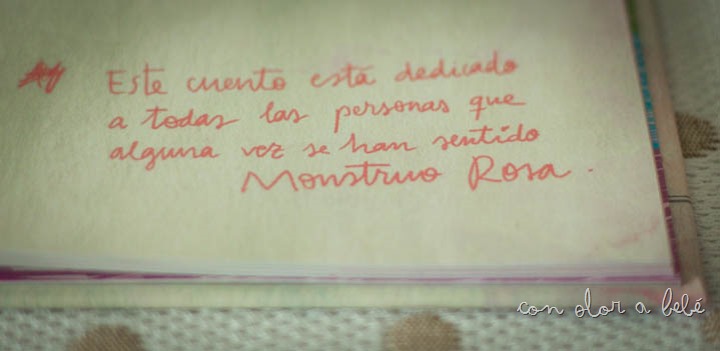 Este cuento está dedicado
a todas las personas que
alguna vez se han sentido
Monstruo Rosa.
con olor a bebé